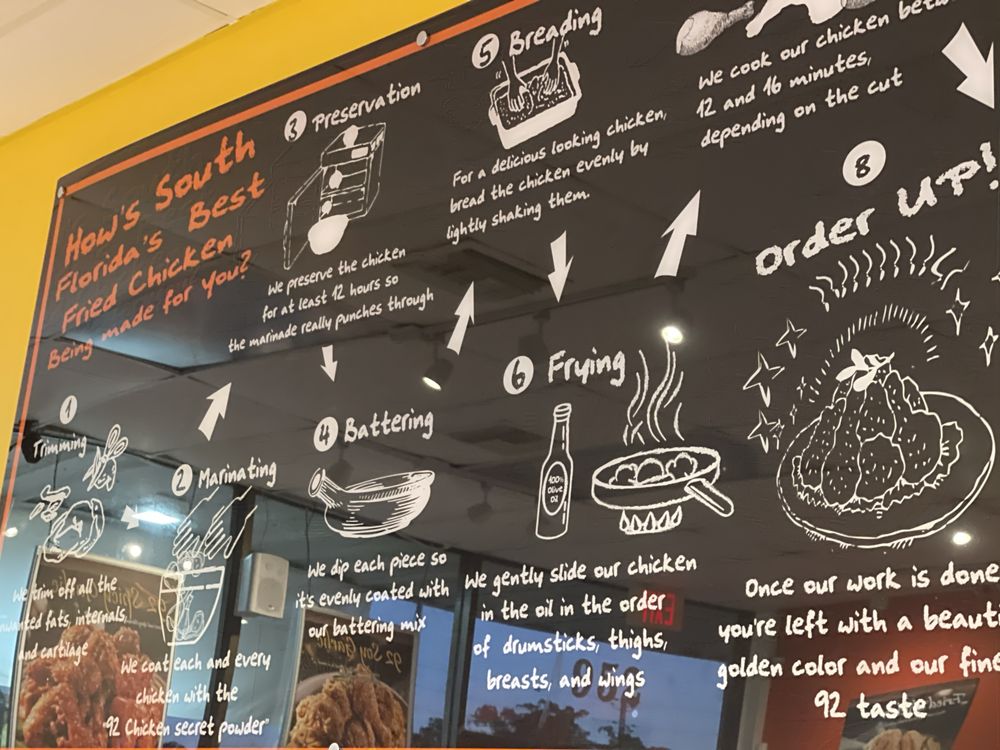 How's South
Florida's Best
Fried Chicken
Being made for you?
1
Trimming
We trim off all the
unwanted fats, internals,
and cartilage
2 Marinating
We coat each and every
chicken with the
"92 Chicken secret powder"
3 Preservation
We preserve the chicken
for at least 12 hours so
the marinade really punches through
4 Battering
We dip each piece so
it's evenly coated with
our battering mix
5 Breading
For a delicious looking chicken,
bread the chicken evenly by
lightly shaking them.
6 Frying
100%
Olive
Oz
We gently slide our chicken
in the oil in the order
of drumsticks, thighs,
breasts, and wings
We cook our chicken
12 and 16 minutes,
depending on the cut
8
Order UP!
Once our work is done
you're left with a
golden color and our
92 taste
EXIT
92 Soy Garlic